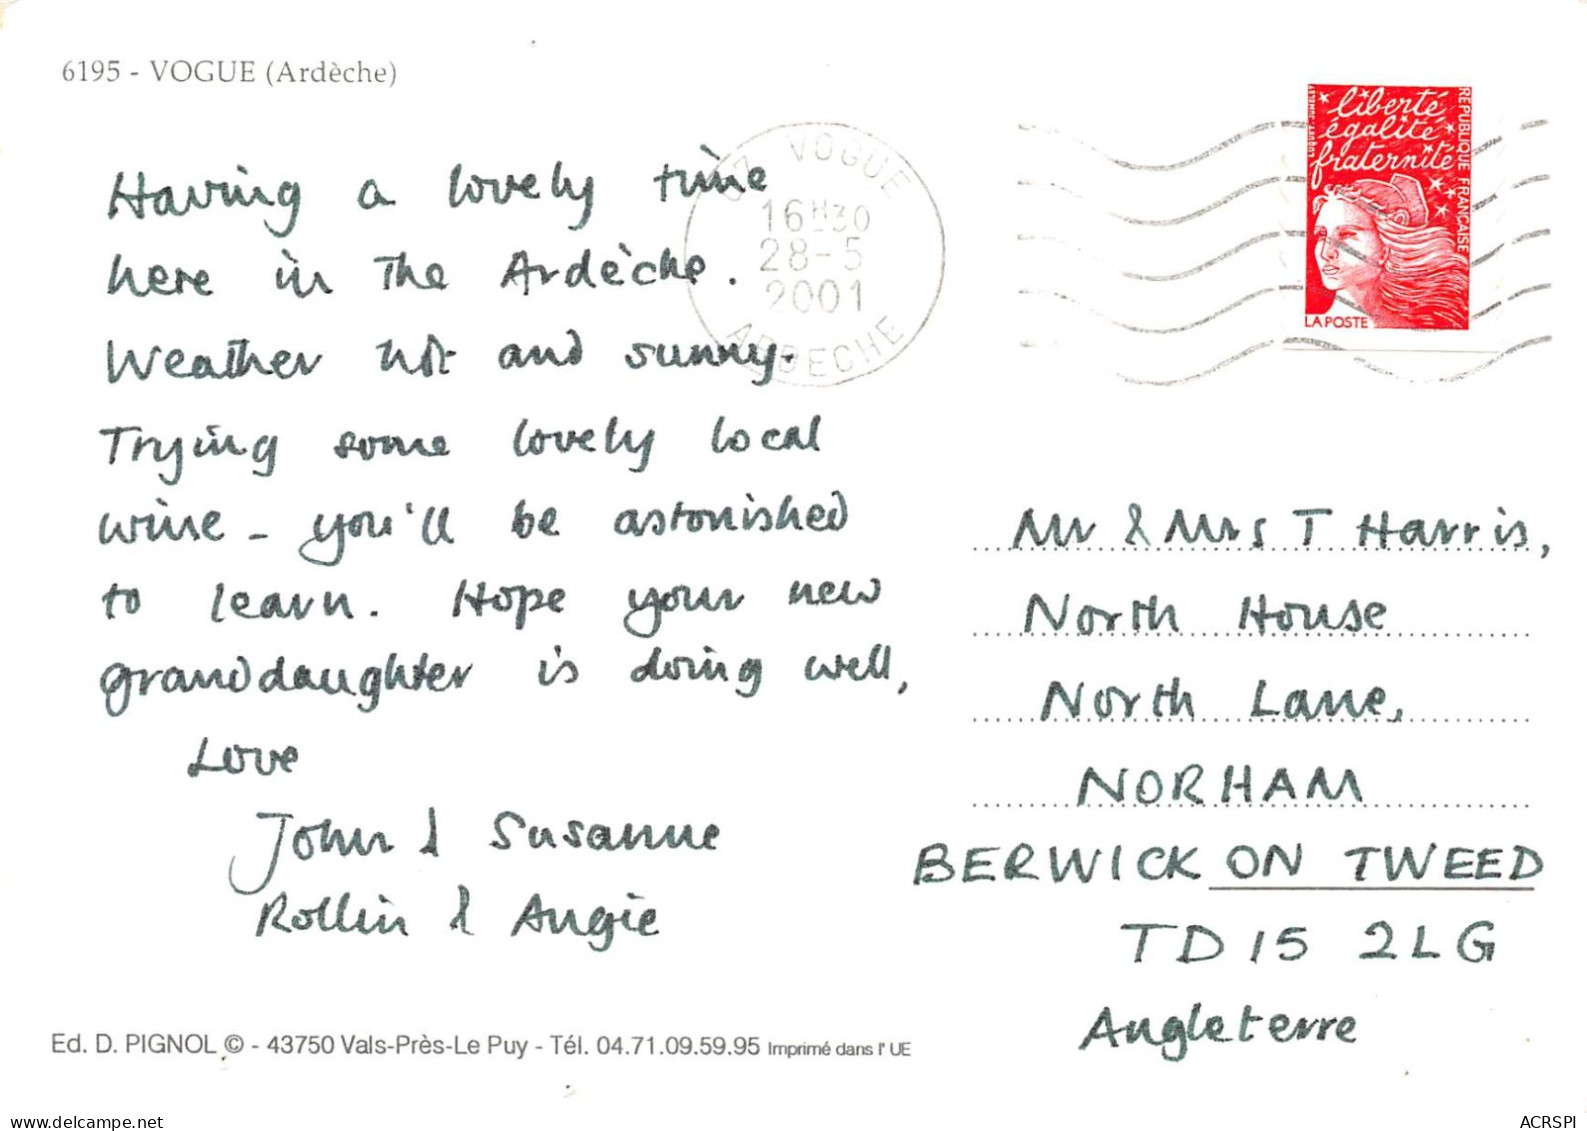 6195 - VOGUE (Ardèche)
Having a lovely time
here in The Ardèche.
Weather hot and sunny.
Trying some lovely local
wine - you'll be astonished
to learn. Hope your new
granddaughter is doing well,
Love
John & Susanne
Rollin & Angie
07 VOGUE
16H30
28-5
2001
ARDECHE
liberté
égalité
fraternité
REPUBLIQUE FRANÇAISE
LA POSTE
Mr & Mrs T Harris,
North House
North Lane,
NORHAM
BERWICK ON TWEED
TD15 2LG
Angleterre
Ed. D. PIGNOL © - 43750 Vals-Près-Le Puy - Tél. 04.71.09.59.95 Imprimé dans l' UE
delcampe.net
ACRSPI